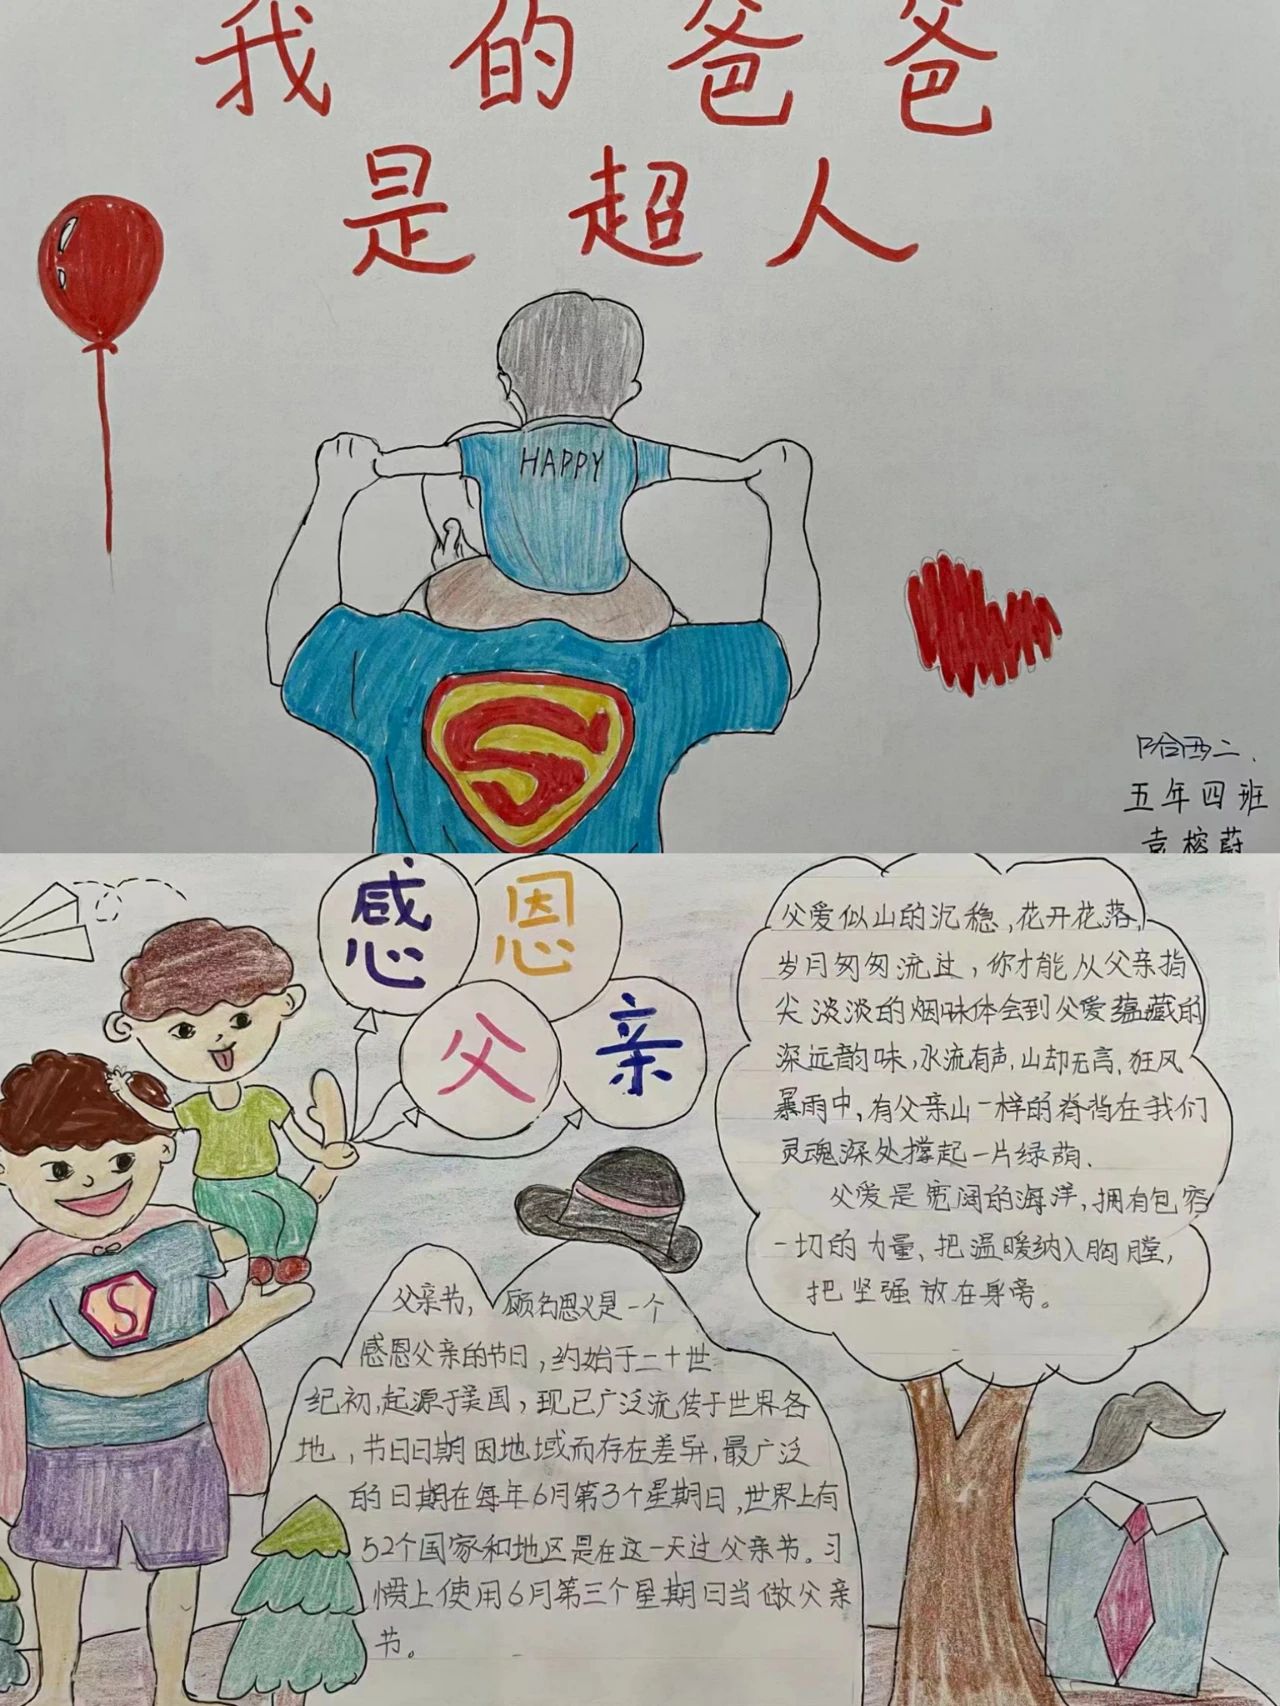 我的爸爸
是超人
HAPPY
S
哈西二、
五年四班
袁榕蔚
感恩
父亲
S
父爱似山的沉稳,花开花落,
岁月匆匆流过,你才能从父亲指
尖淡淡的烟味体会到父爱蕴藏的
深远韵味,水流有声,山却无言,狂风
暴雨中,有父亲山一样的脊背在我们
灵魂深处撑起一片绿荫、
父爱是宽阔的海洋,拥有包容
一切的力量、把温暖纳入胸膛,
把坚强放在身旁。
父亲节,顾名思义是一个
感恩父亲的节日,约始于二十世
纪初,起源于美国,现已广泛流传于世界各
地,节日日期因地域而存在差异,最广泛
的日期在每年6月第3个星期日,世界上有
52个国家和地区是在这一天过父亲节。习
惯上使用6月第三个星期日当做父亲
节。